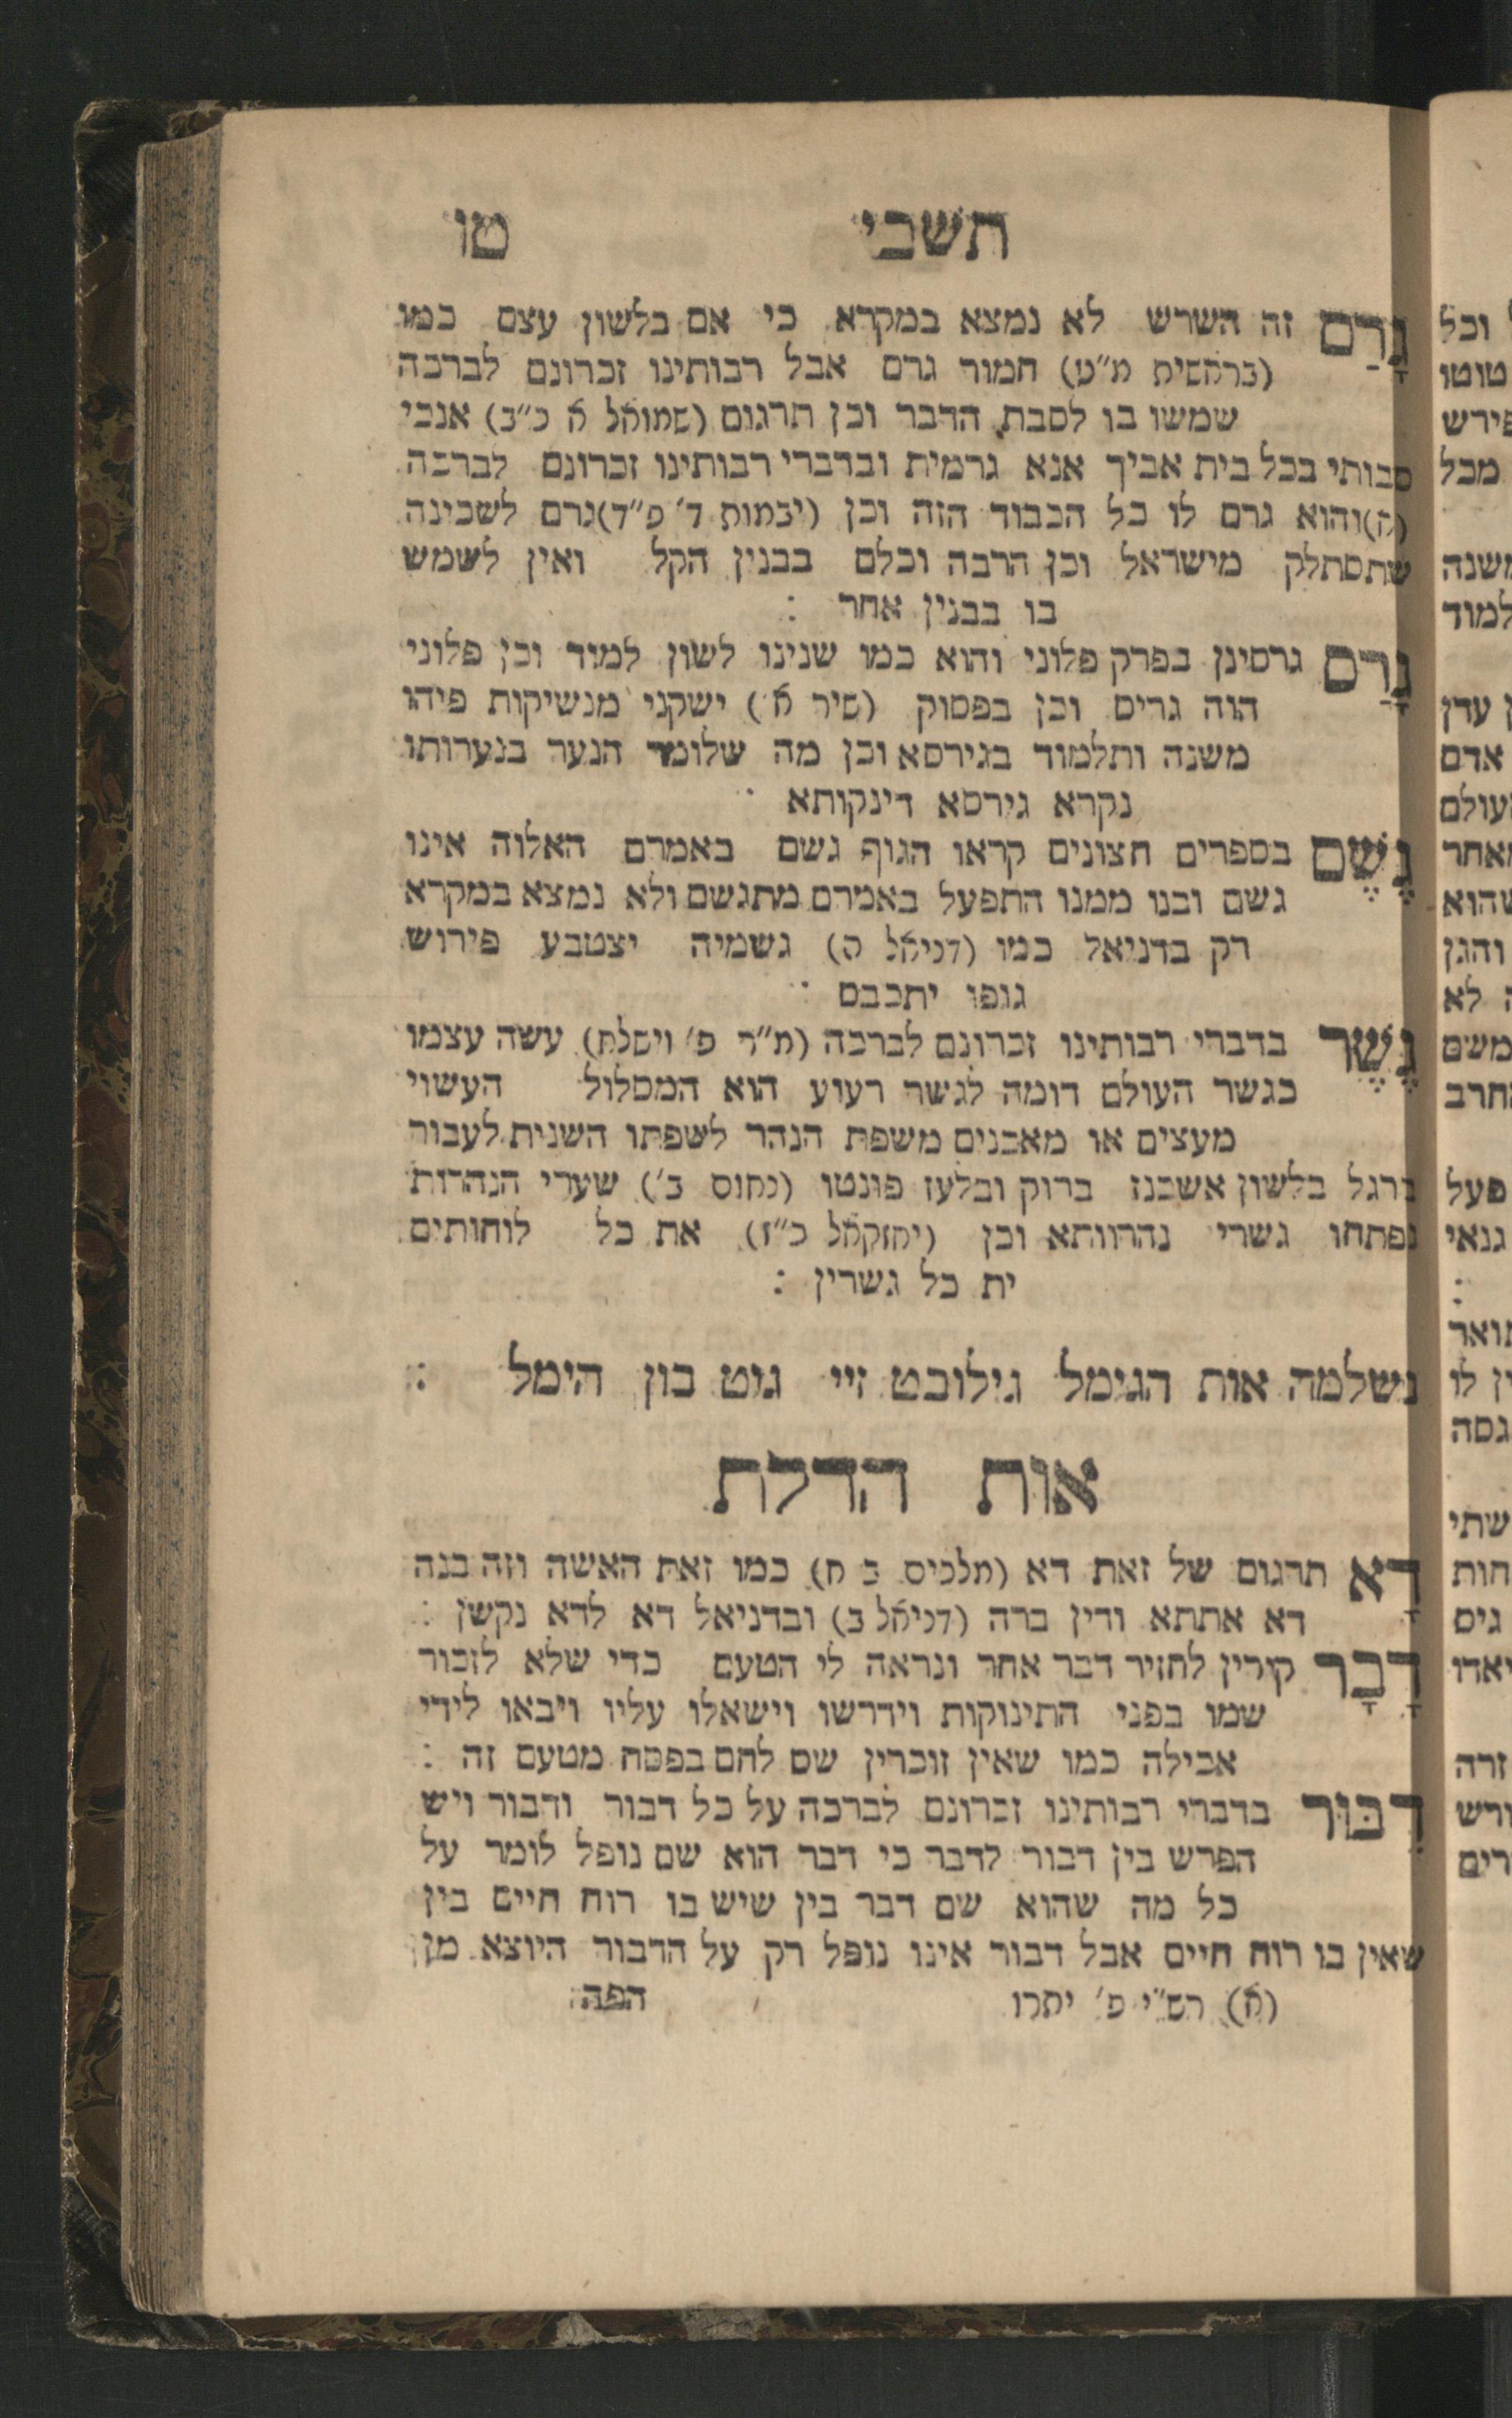 תשבי טו
גָרַם זה השרש לא נמצא במקרא כי אם בלשון עצם כמו
(בראשית מ״ט) חמור גרם אבל רבותינו זכרונם לברכה
שמשו בו לסבת הדבר וכן תרגום (שמואל א כ״ב) אנכי
סבותי בכל בית אביך אנא גרמית ובדברי רבותינו זכרונם לברכה
והוא גרם לו כל הכבוד הזה וכן (יבמות ד׳ פ״ד) גרם לשכינה
שתסתלק מישראל וכן הרבה וכלם בבנין הקל ואין לשמש
בו בבנין אחר :
גָרַס גרסינן בפרק פלוני והוא כמו שנינו לשון למוד וכן פלוני
הוה גריס וכן בפסוק (שיר א׳) ישקני מנשיקות פיהו
משנה ותלמוד בגירסא וכן מה שלומד הנער בנערותו
נקרא גירסא דינקותא :
גֶשֶׁם בספרים חצונים קראו הגוף גשם באמרם האלוה אינו
גשם ובנו ממנו התפעל באמרם מתגשם ולא נמצא במקרא
רק בדניאל כמו (דניאל ה) גשמיה יצטבע פירוש
גופו יתכבס :
גֶשֶׁר בדברי רבותינו זכרונם לברכה (מ״ר פ׳ וישלח) עשה עצמו
כגשר העולם דומה לגשר רעוע הוא המסלול העשוי
מעצים או מאבנים משפת הנהר לשפתו השנית לעבור
ברגל בלשון אשכנז ברוק ובלעז פונטו (נחום ב׳) שערי הנהרות
נפתחו גשרי נהרוותא וכן (יחזקאל כ״ז) את כל לוחותים
ית כל גשרין :
נשלמה אות הגימל גילובט זיי גיט בון הימל :
אות הדלת
דָא תרגום של זאת דא (מלכים ב ח) כמו זאת האשה וזה בנה
דא אתתא ודין ברה (דניאל ב) ובדניאל דא לדא נקשן :
דָבָר קורין לחזיר דבר אחר ונראה לי הטעם כדי שלא לזכור
שמו בפני התינוקות וידרשו וישאלו עליו ויבאו לידי
אכילה כמו שאין זוכרין שם לחם בפסח מטעם זה :
דִבּוּר בדברי רבותינו זכרונם לברכה על כל דבור ודבור ויש
הפרש בין דבור לדבר כי דבר הוא שם נופל לומר על
כל מה שהוא שם דבר בין שיש בו רוח חיים בין
שאין בו רוח חיים אבל דבור אינו נופל רק על הדבור היוצא מן
(א) רש״י פ׳ יתרו הפה
וכל
טוטו
פירש
מכל
משנה
למוד
עדן
אדם
מאחר
שהוא
והגן
לא
פעל
גנאי
:
לו
גסה
שתי
חות
גיס
זרה